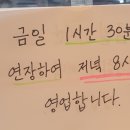 금일 1시간 30분
연장하여 저녁 8시
영업합니다.